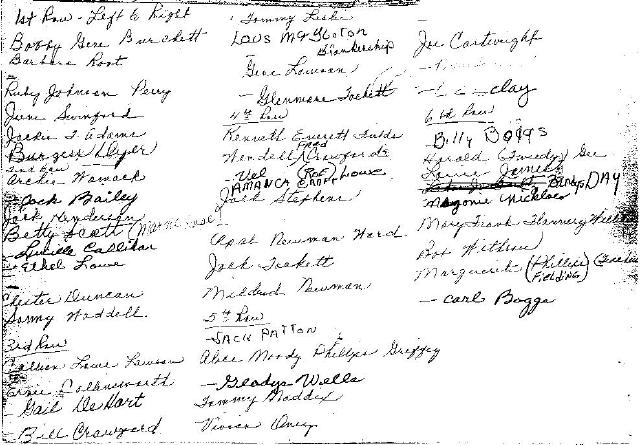 1st Row - Left to Right
Bobby Gene Burchett
Barbara Root
Ruby Johnson Perry
June Swinford
Jackie T. Adams
Burgess Dyer
2nd Row
Archie Womack
- Cock Bailey
Jack Henderson
Betty Scott
- Lucille Callihan
- Ethel Lowe
Chester Duncan
Sonny Waddell
3rd Row
Lowe Lawson
Ernie
Gail DeHart
- Bill Crawford
Tommy Leslie
Lous McGloton
Blankership
Gene Lawson
- Glenmore Tackett
4th Row
Kenneth Everett Fields
Fred
Wendell Crawford
- Viel (Roe) Lowe
Jack Stephens
Opal Newman Ward
Jack Tackett
Mildred Newman
5th Row
- Jack Patton
Alice Moody Phillips Griffey
- Gladys Wells
Tommy Maddix
Vivian
Joe Cartwright
Clay
6th Row
- Billy Boggs
Harold (Tweedy) Gee
- Gladys Day
Mary Frank Flannery
Bob Withrow
Marguerite (Phillips)
(Fielding)
- Carl Boggs